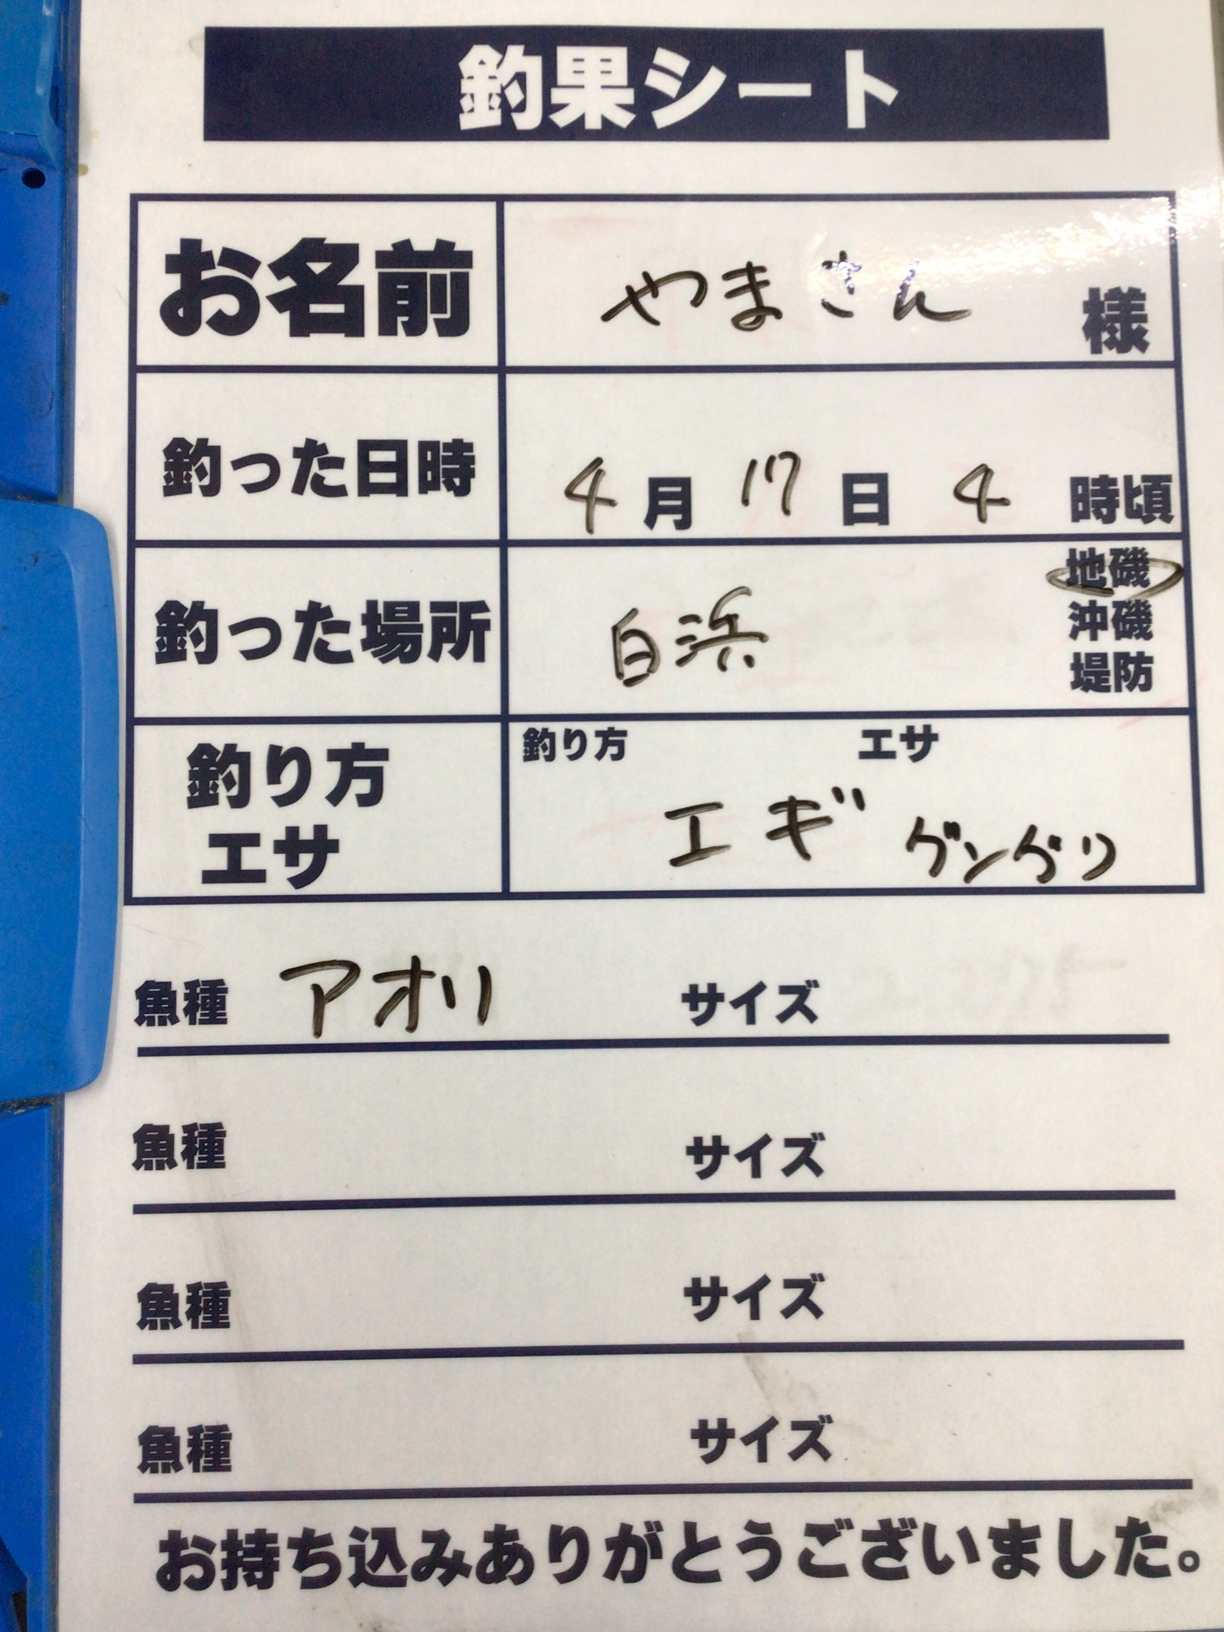 釣果シート
お名前 やまさん 様
釣った日時 4月17日4時頃
地磯
釣った場所 白浜 沖磯
堤防
釣り方 エサ
釣り方 エギ グングリ
エサ
魚種 アオリ サイズ
魚種 サイズ
魚種 サイズ
魚種 サイズ
お持ち込みありがとうございました。